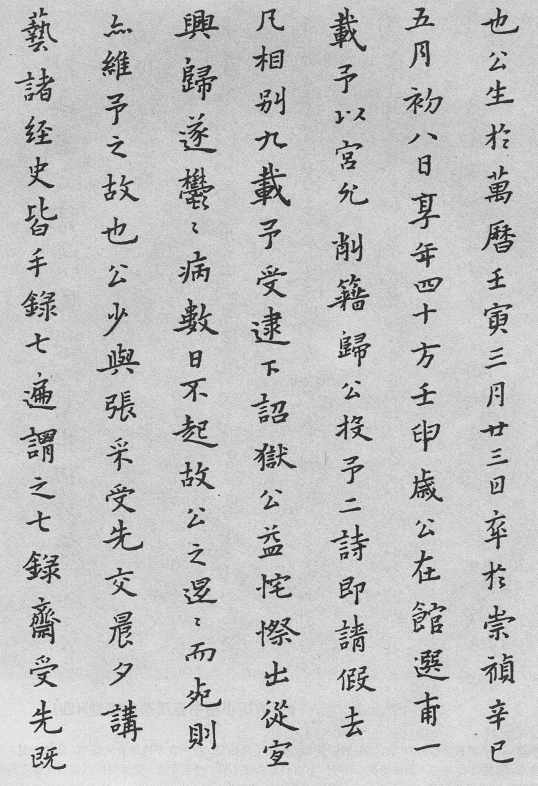 也公生於萬曆壬寅三月廿三日卒於崇禎辛巳
五月初八日享年四十方壬申歲公在館選甫一
載予以宮允削籍歸公投予二詩即請假去
凡相别九載予受逮下詔獄公益侘傺出從宦
興歸遂鬱〻病數日不起故公之遑〻而死則
亦維予之故也公少與張采受先交晨夕講
藝諸経史皆手錄七遍謂之七錄齋受先既